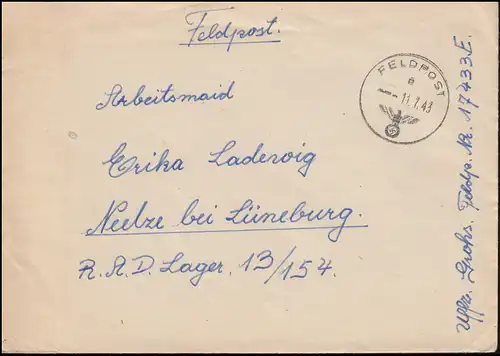 Feldpost.
FELDPOST
e
-- 11.7.43
Arbeitsmaid
Erika Ladewig
Neetze bei Lüneburg.
R.A.D. Lager. 13/154.
Uffz. Grohs. Feldp. Nr. 17433E.